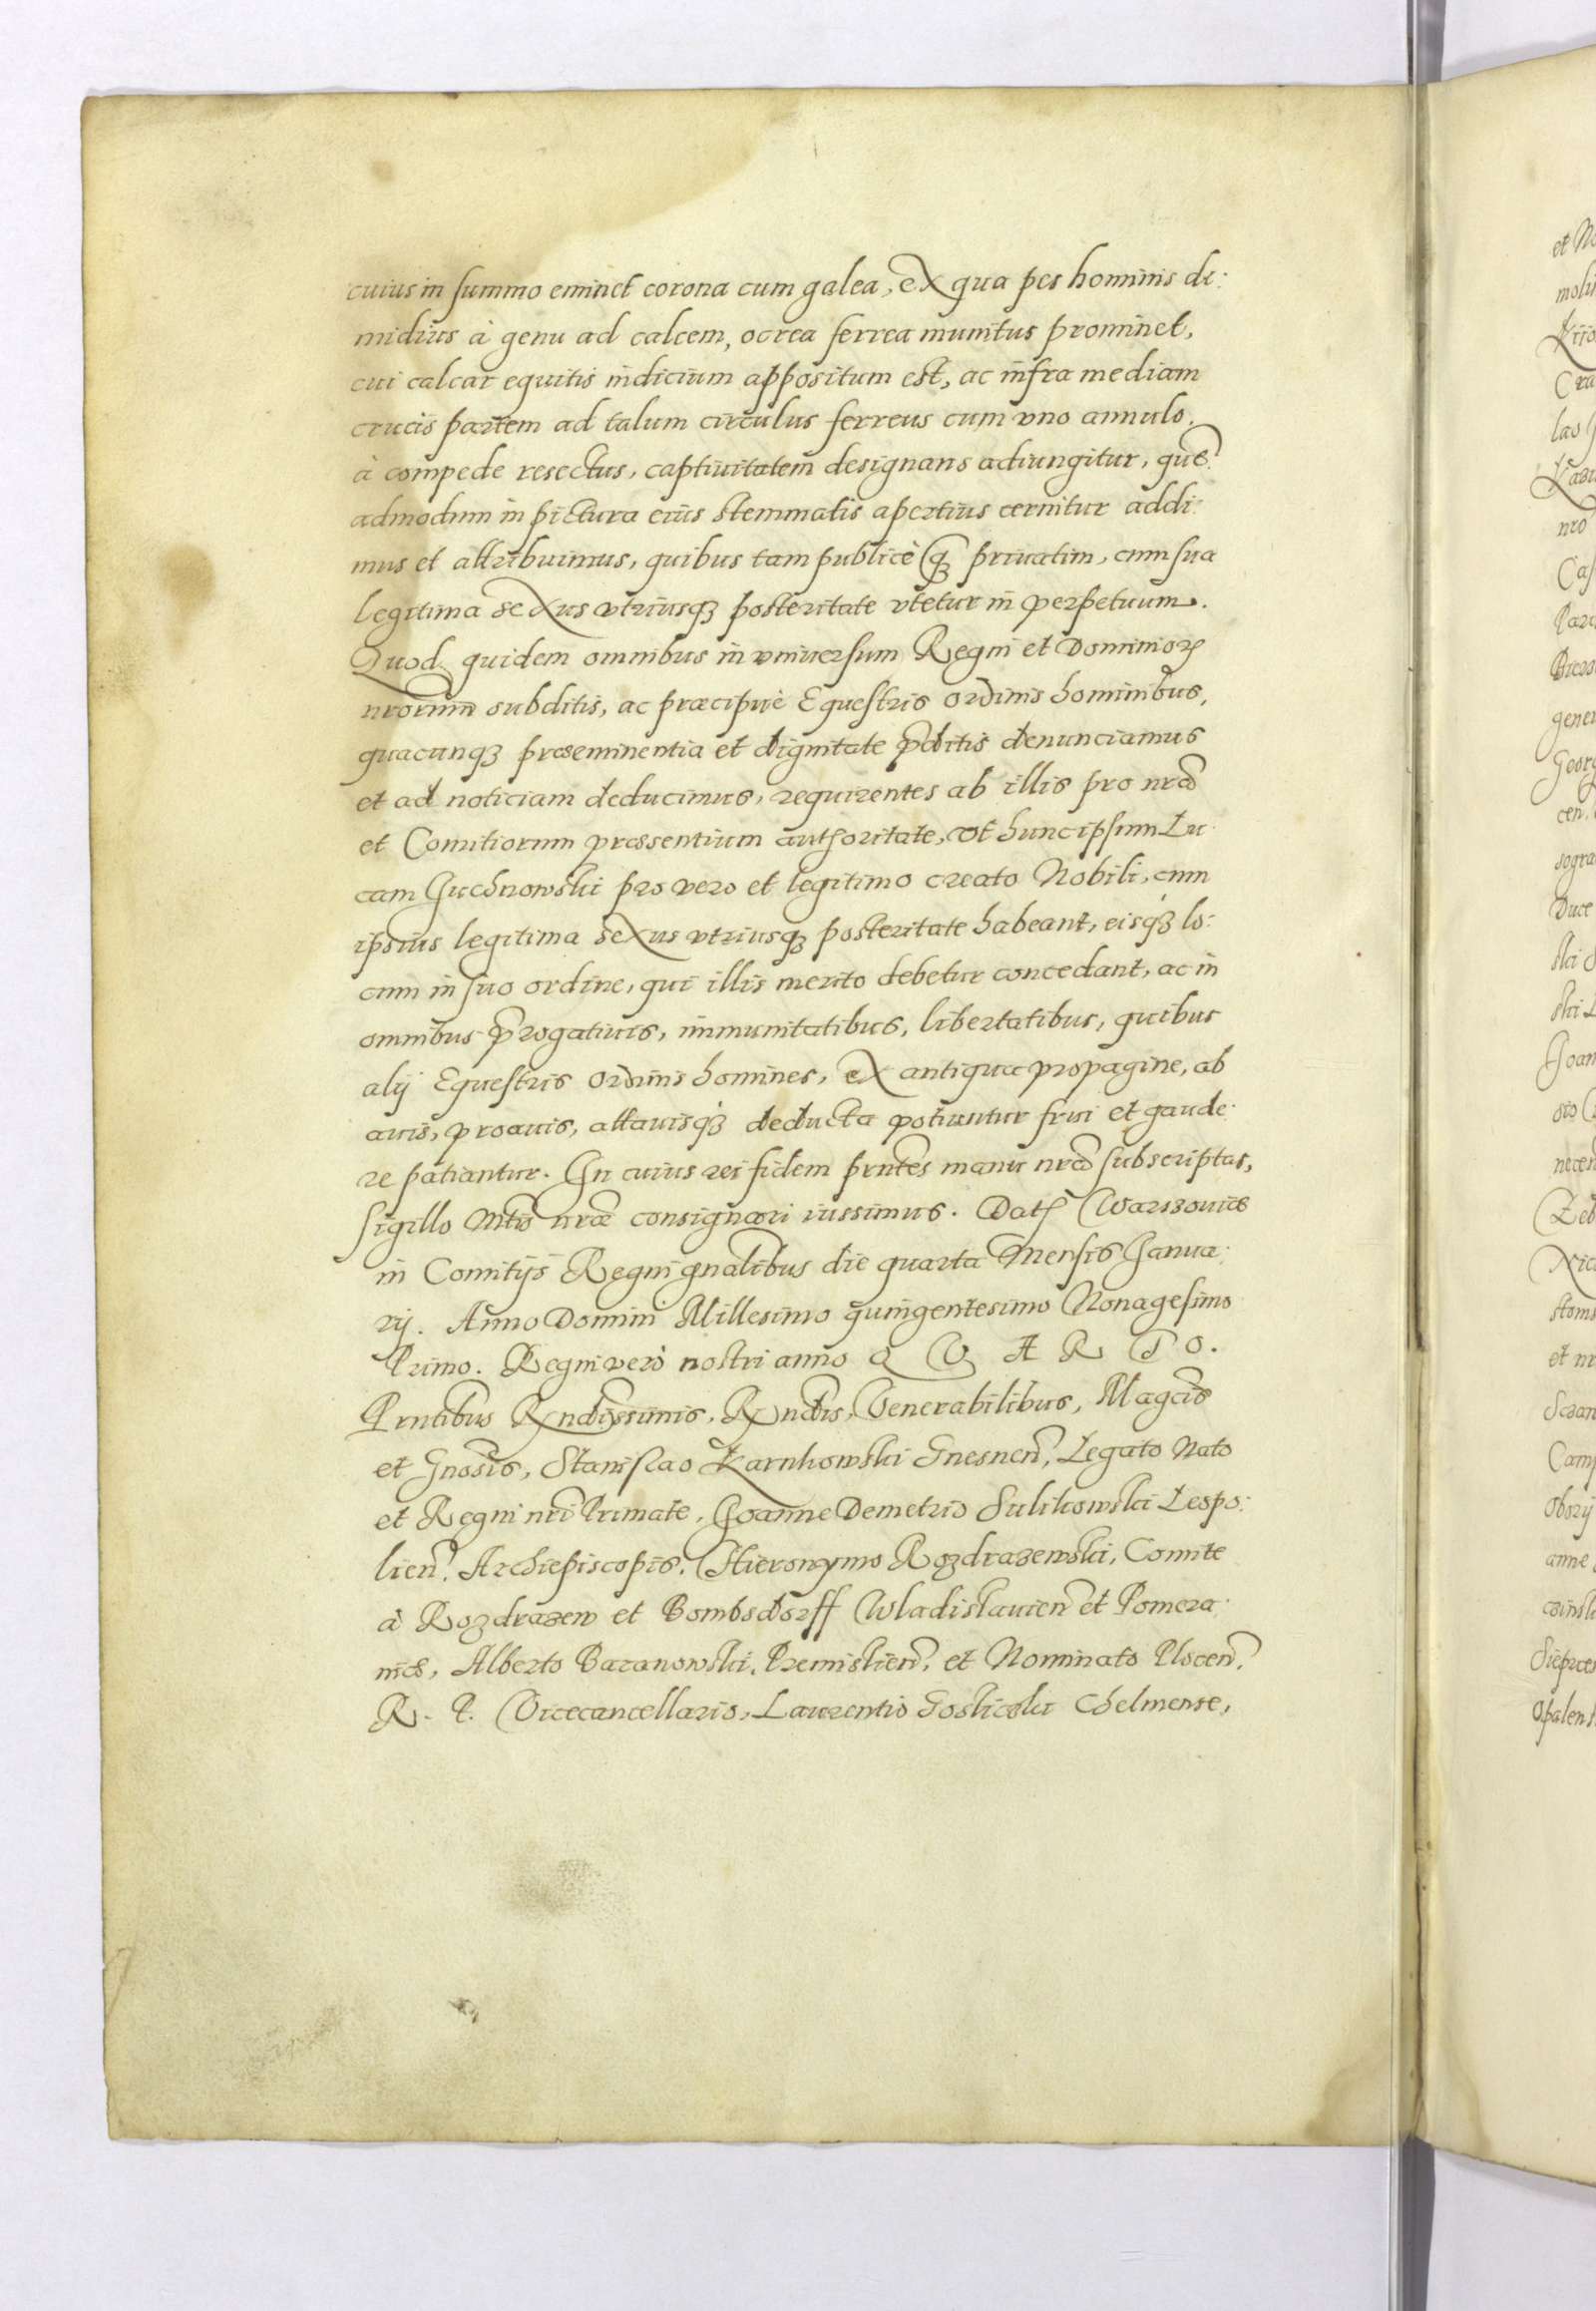 cuius in summo eminet corona cum galea, ex qua pes hominis di:
midius à genu ad calcem, ocrea ferrea munitus prominet,
cui calcar equitis indicium appositum est, ac infra mediam
crucis partem ad talum circulus ferreus cum vno annulo,
à compede resectus, captiuitatem designans adiungitur, quẽ
admodum in pictura eius stemmatis apertius cernitur addi:
mus et attribuimus, quibus tam publicè q̃ꝫ priuatim, cum sua
legitima sexus vtriusqꝫ posteritate vtetur in perpetuum.
Quod quidem omnibus in vniuersum Regni et Dominioꝝ
nrorum subditis, ac præcipuè Equestris ordinis hominibus,
quacunqꝫ præeminentia et dignitate p̃ditis denunciamus
et ad noticiam deducimus, requirentes ab illis pro nrã
et Comitiorum præsentium authoritate, vt hunc ipsum Lu
cam Guchnowski pro vero et legitimo creato Nobili, cum
ipsius legitima sexus vtriusqꝫ posteritate habeant, eisqꝫ lo:
cum in suo ordine, qui illis merito debetur concedant, ac in
omnibus p̃rogatiuis, immunitatibus, libertatibus, quibus
alij Equestris ordinis homines, ex antiqua propagine, ab
auis, proauis, attauisqꝫ deducta potiuntur frui et gaude:
re patiantur. In cuius rei fidem prñtes manu nrã subscriptas,
sigillo Mtis nræ consignari iussimus. Dat Warszouiæ
in Comitijs Regni gnalibus die quarta Mensis Janua:
rij. Anno Domini Millesimo quingentesimo Nonagesimo
Primo. Regni verò nostri anno Q V A R T O.
Prntibus Rndissimis, Rndis, Venerabilibus, Magcis
et Gnosis, Stanislao Karnkowski Gnesneñ, Legato Nato
et Regni nri Primate, Joanne Demetrio Sulikowski Leopo:
lieñ. Archiepiscopis. Hieronymo Rozdrazewski, Comite
à Rozdrazew et Bombsdorff Wladislauieñ et Pomera:
niæ, Alberto Baranowski, Premislieñ, et Nominato Ploceñ.
R. P. Vicecancellario, Laurentio Goslicki Chelmense,